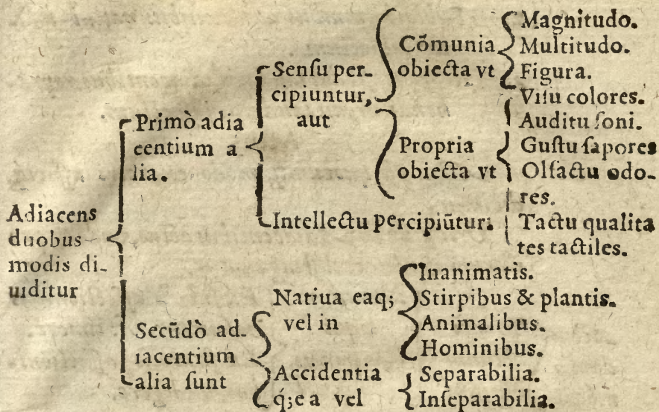 Adiacens
duobus
modis di-
uiditur
Primò adia
centium a
lia.
Sensu per-
cipiuntur,
aut
Cõmunia
obiecta vt
Magnitudo.
Multitudo.
Figura.
Propria
obiecta vt
Visu colores.
Auditu soni.
Gustu sapores
Olfactu odo-
res.
Tactu qualita
tes tactiles.
Intellectu percipiũtur.
Secũdò ad-
iacentium
alia sunt
Natiua eaq;
vel in
Inanimatis.
Stirpibus & plantis.
Animalibus.
Hominibus.
Accidentia
q;ea vel
Separabilia.
Inseparabilia.